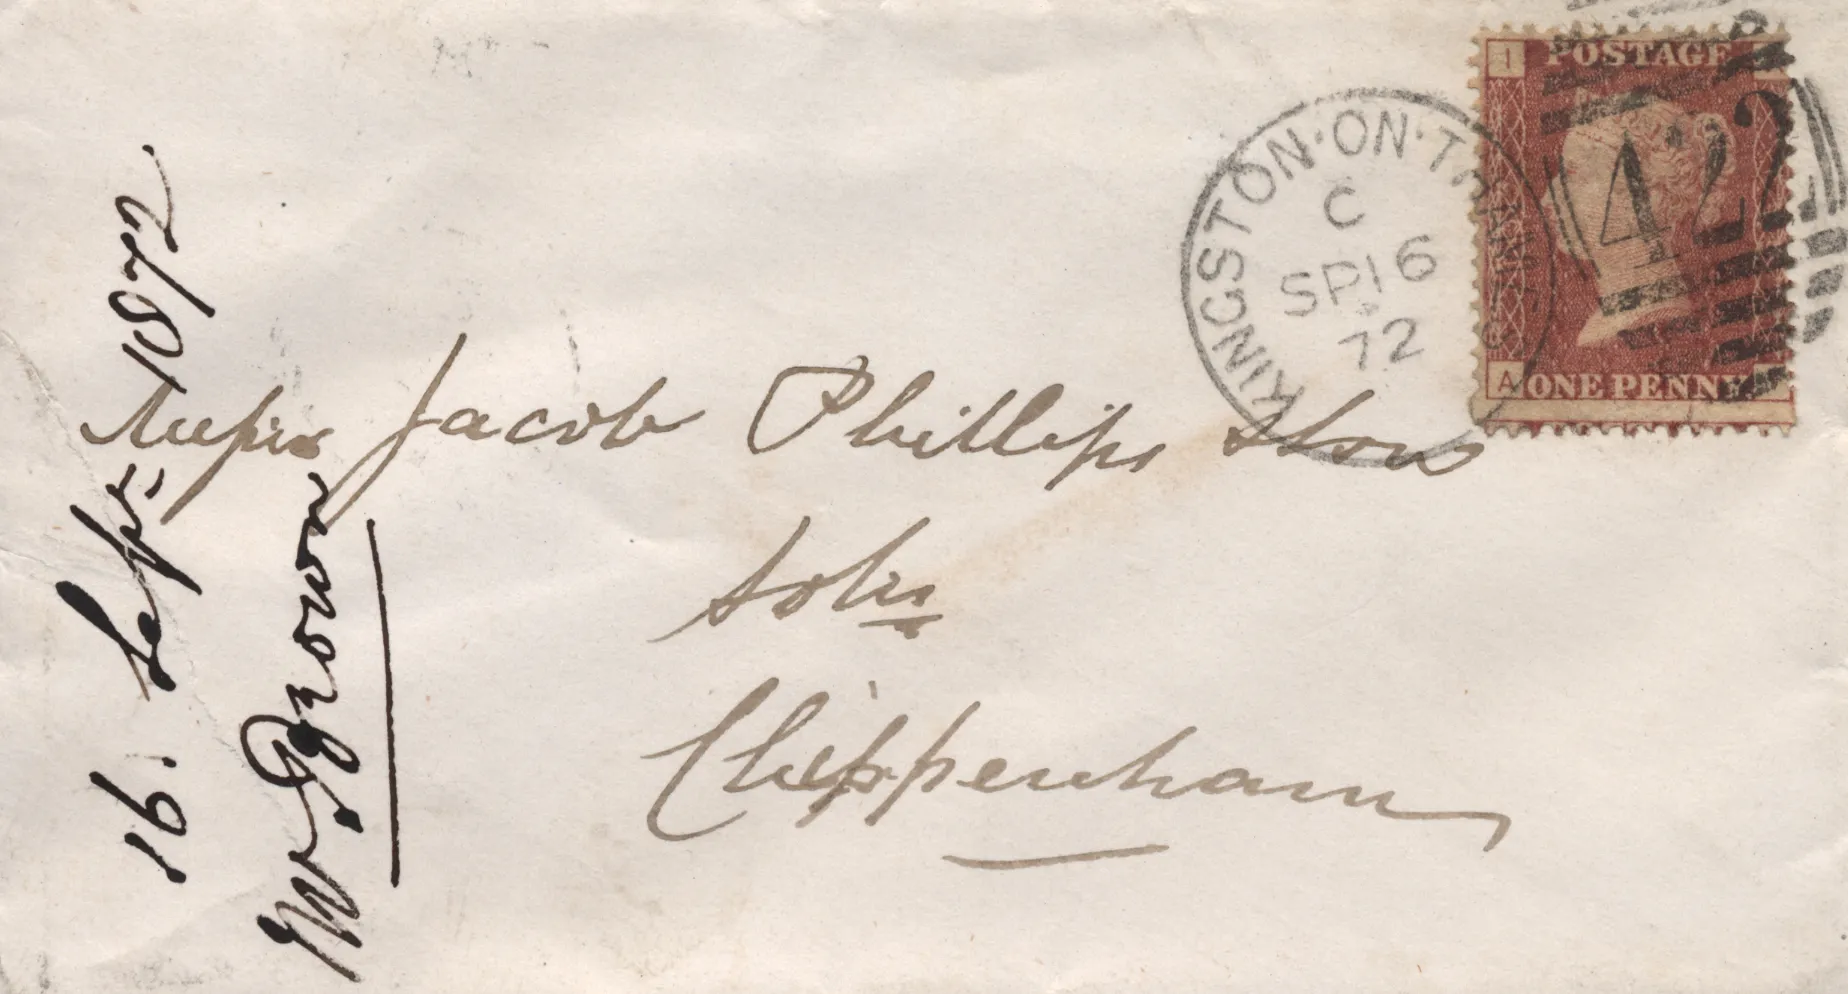 POSTAGE
I
422
A ONE PENNY.
KINGSTON·ON·THAMES
C
SP 16
72
Messrs Jacob Phillips & Sons
Solrs
Chippenham
16. Sept. 1872
W Brown